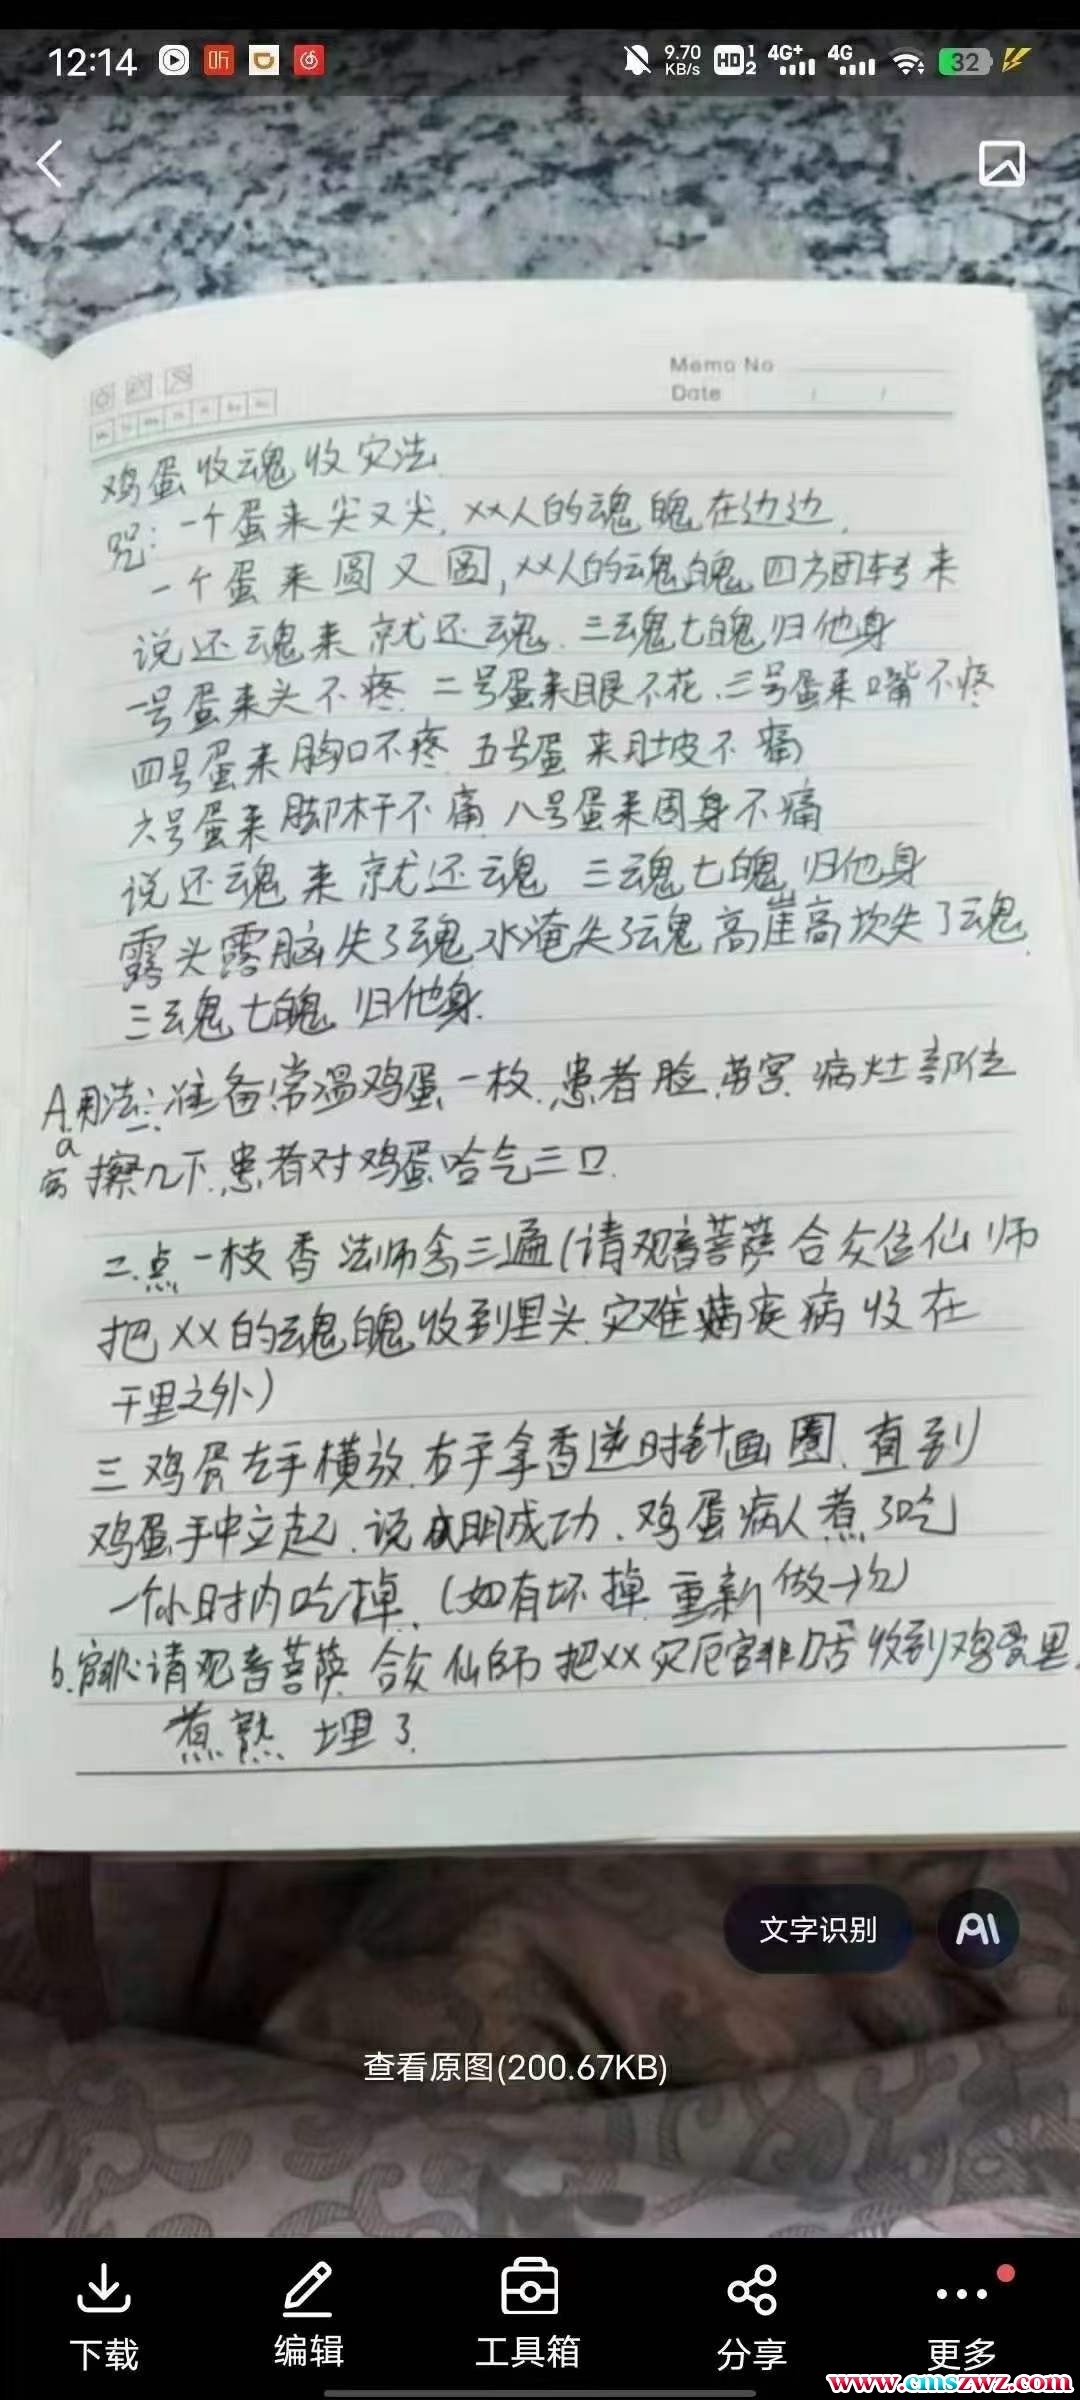 12:14
9.70 KB/s HD 1 2 4G+ 4G 32
Memo No
Date / /
鸡蛋收魂收灾法
咒:一个蛋来尖又尖,XX人的魂魄在边边,
一个蛋来圆又圆,XX人的魂魄四方团转来
说还魂来就还魂.三魂七魄归他身
一号蛋来头不疼 二号蛋来眼不花.三号蛋来嘴不疼
四号蛋来胸口不疼 五号蛋来肚皮不痛
六号蛋来脚杆不痛 八号蛋来周身不痛
说还魂来就还魂 三魂七魄归他身
露头露脑失了魂 水淹失了魂 高崖高坎失了魂
三魂七魄归他身.
A.用法:一.准备常温鸡蛋一枚.患者脸.劳宫.病灶部位
a
擦几下.患者对鸡蛋哈气三口.
二.点一枝香 法师念三遍(请观音菩萨合众位仙师
把XX的魂魄收到里头.灾难疾病收在
千里之外)
三鸡蛋左手横放.右手拿香逆时针画圈.直到
鸡蛋手中立起.说明成功.鸡蛋病人煮了吃
一个小时内吃掉.(如有坏掉 重新做一次)
b.官非请观音菩萨 合众仙师把XX灾厄官非口舌收到鸡蛋里.
煮熟 埋了.
文字识别
AI
查看原图(200.67KB)
下载 编辑 工具箱 分享 更多
www.cmszwz.com